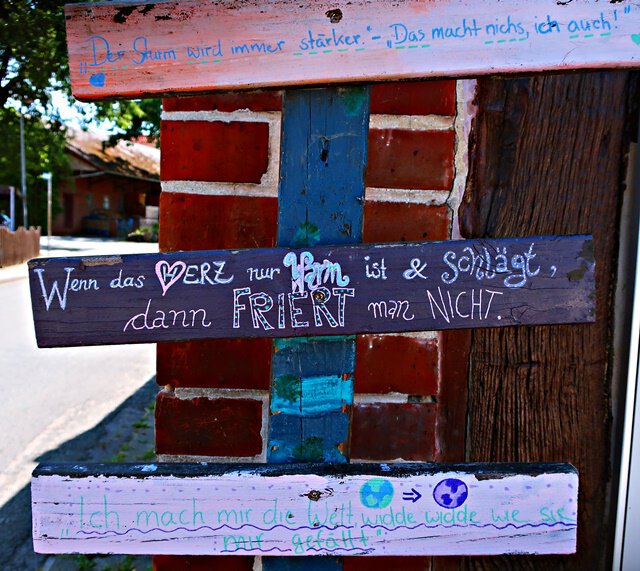 „Der Sturm wird immer stärker.“ – „Das macht nichs, ich auch!“
Wenn das HERZ nur warm ist & schlägt,
dann FRIERT man NICHT.
„Ich mach mir die Welt widde widde wie sie
mir gefällt“